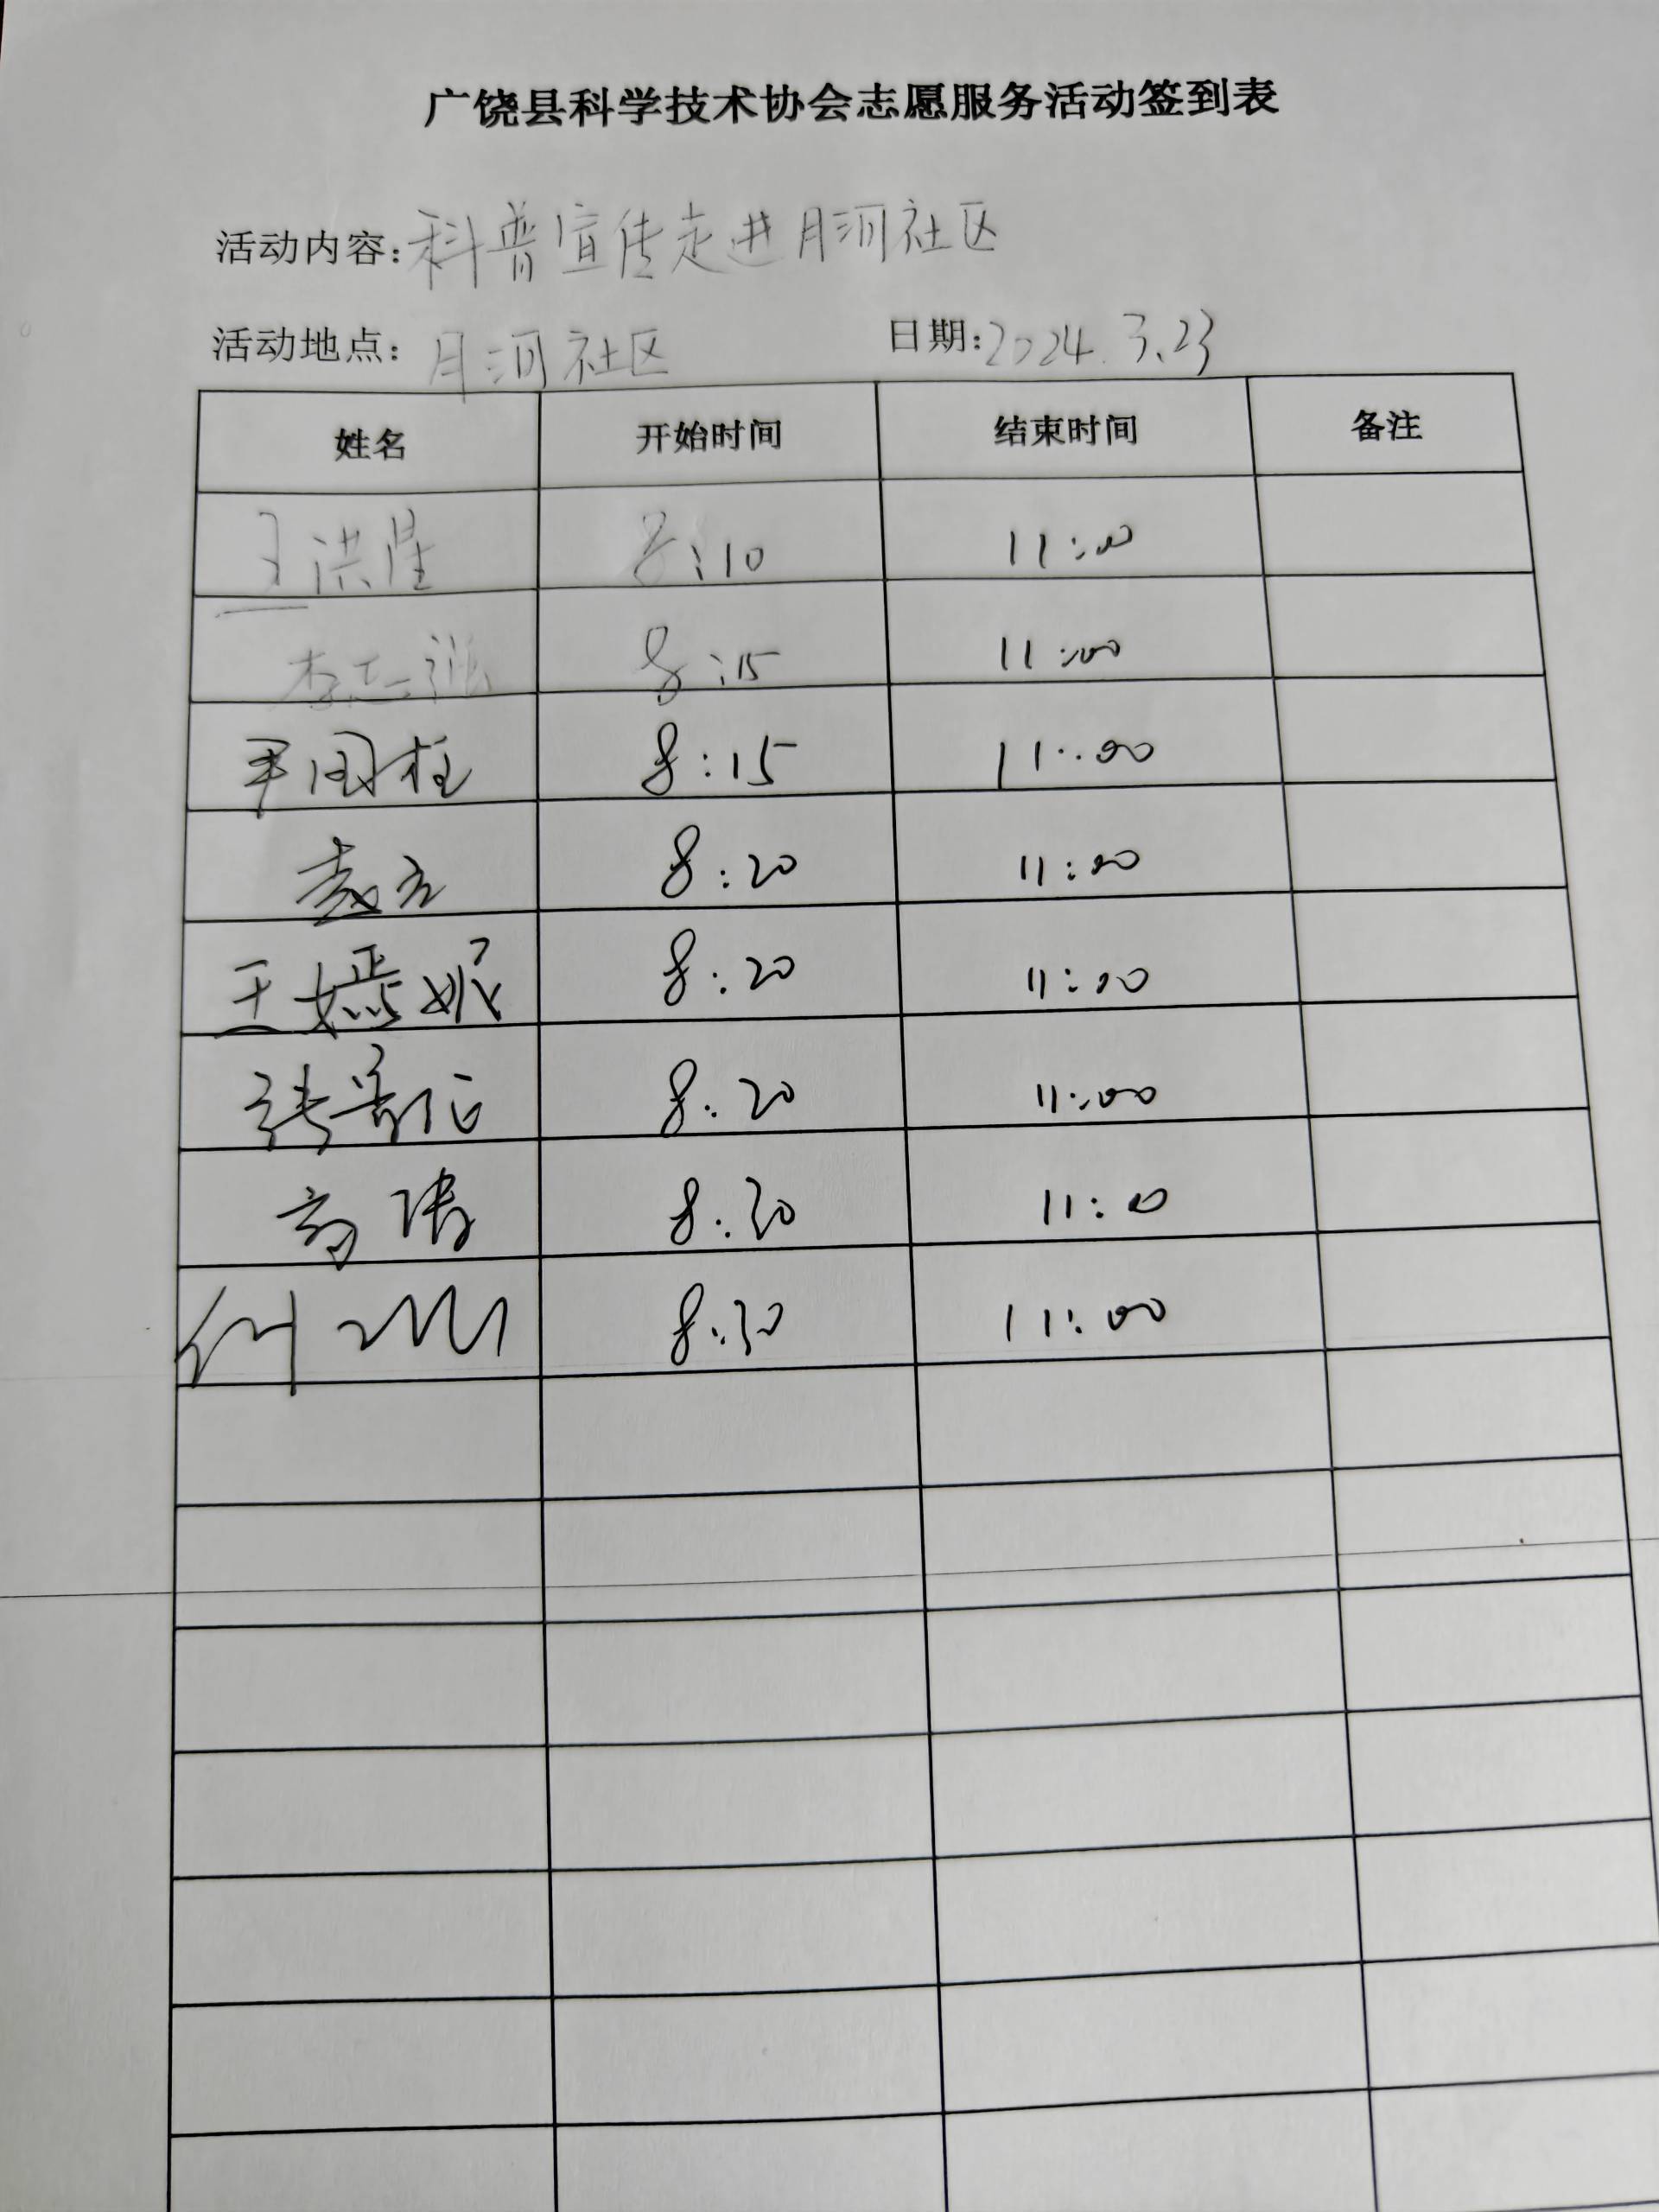 广饶县科学技术协会志愿服务活动签到表
活动内容:科普宣传走进月河社区
活动地点:月河社区 日期:2024.3.23
姓名 开始时间 结束时间 备注
王洪星 8:10 11:00
李志强 8:15 11:00
尹国柱 8:15 11:00
袁方 8:20 11:00
王嫣妮 8:20 11:00
张景信 8:20 11:00
高倩 8:30 11:00
8:30 11:00